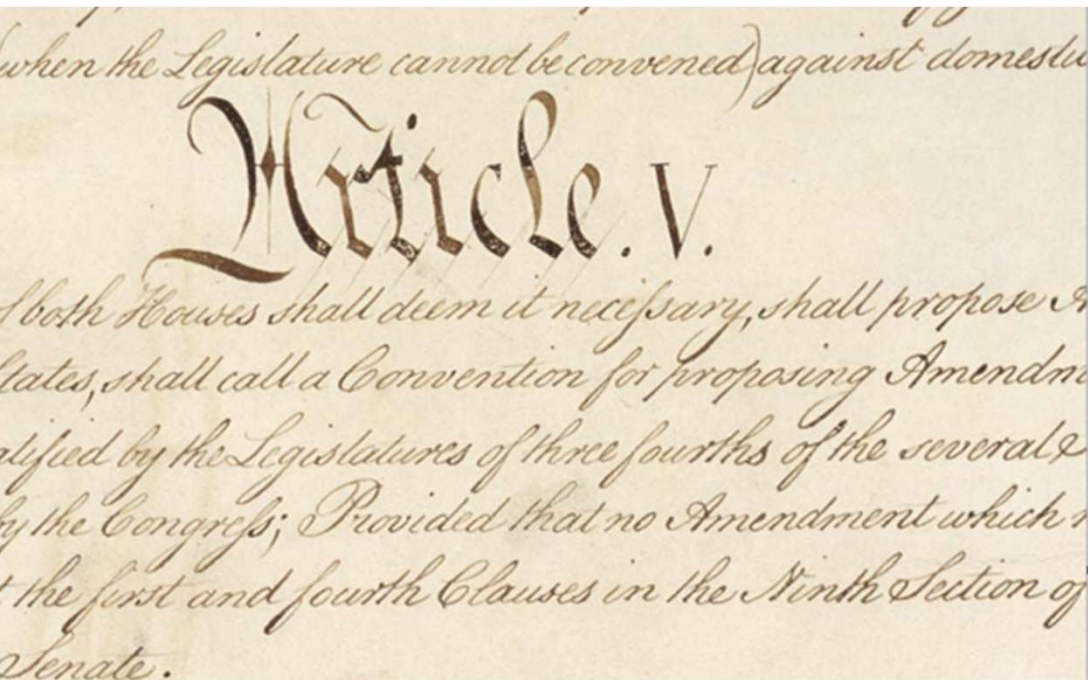 (when the Legislature cannot be convened) against domestic
Article. V.
of both Houses shall deem it necessary, shall propose A
States, shall call a Convention for proposing Amendm
ratified by the Legislatures of three fourths of the several S
by the Congress; Provided that no Amendment which
t the first and fourth Clauses in the Ninth Section of
Senate.